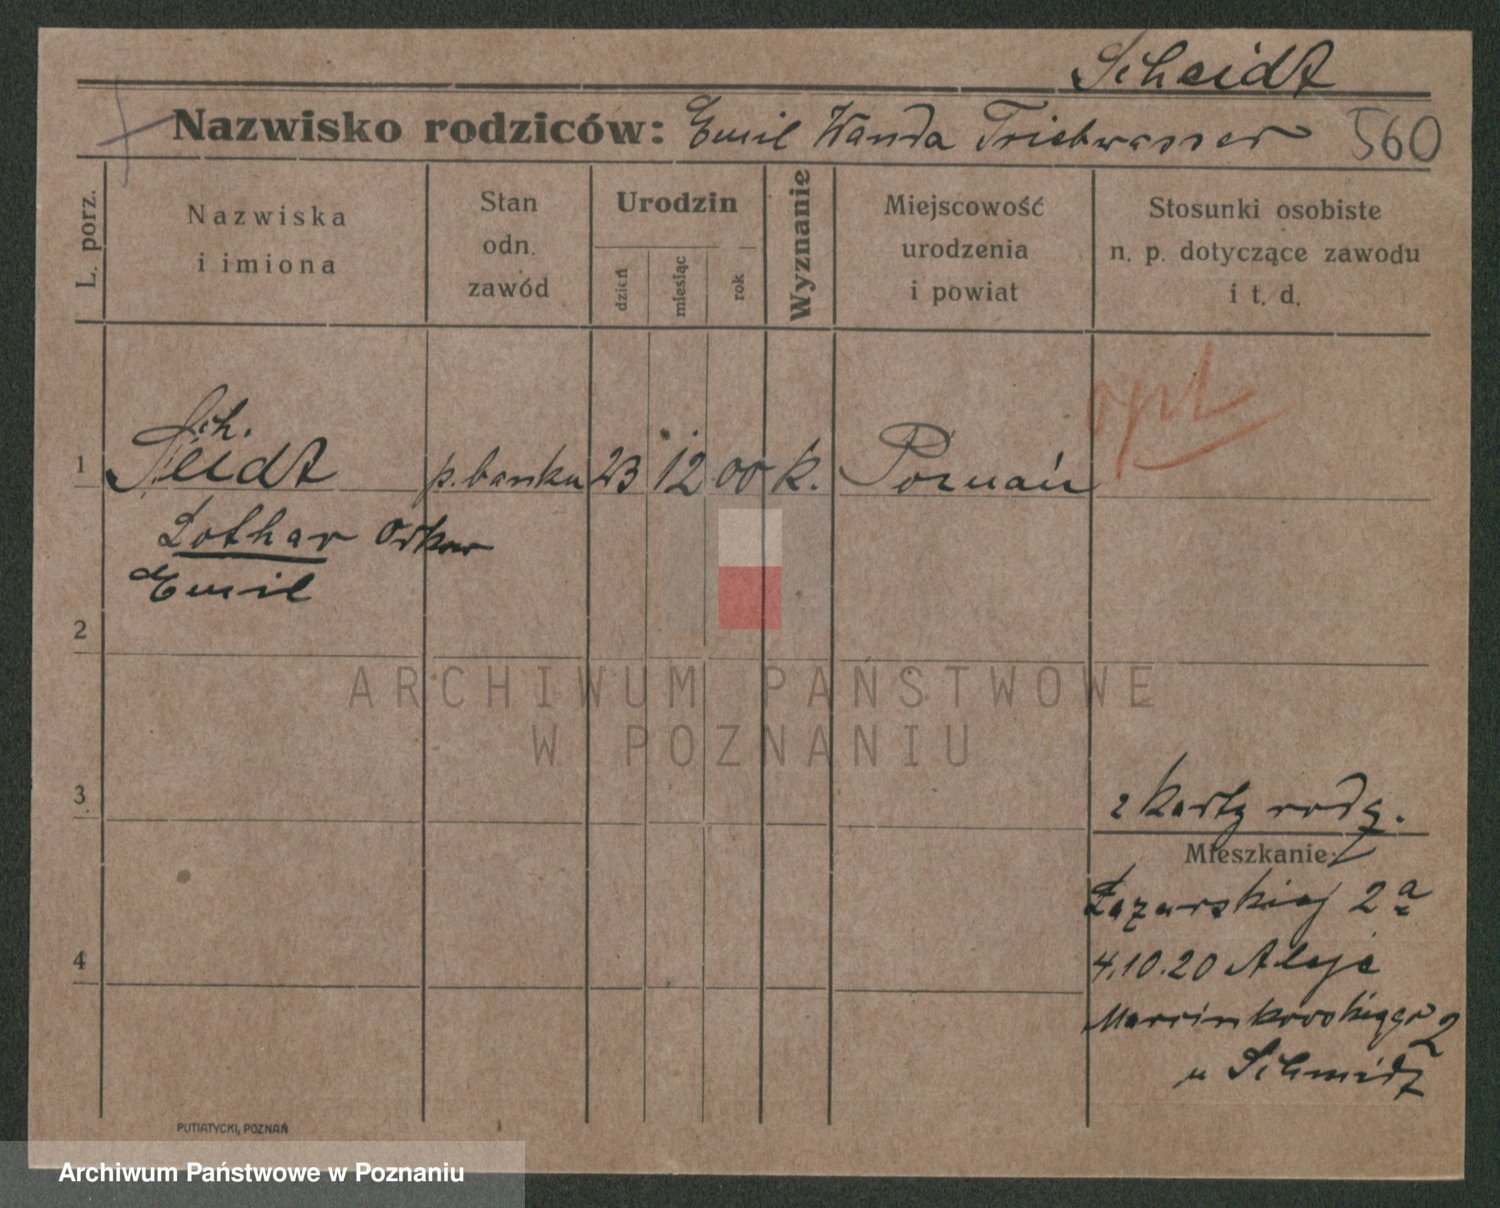 Scheidt
Nazwisko rodziców: Emil Wanda Triebwasser 560
L. porz.
Nazwiska
i imiona
Stan
odn.
zawód
Urodzin
dzień
miesiąc
rok
Wyznanie
Miejscowość
urodzenia
i powiat
Stosunki osobiste
n. p. dotyczące zawodu
i t. d.
opt
Sch.
1 Seidt p. banku 23 12 00 k. Poznań
Lothar Oskar
Emil
2
ARCHIWUM PAŃSTWOWE
W POZNANIU
3
z karty rodz.
Mieszkanie
Łazarskiej 2a
4
4.10.20 Aleje
Marcinkowskiego 2
u Schmidt
PUTIATYCKI, POZNAŃ
Archiwum Państwowe w Poznaniu